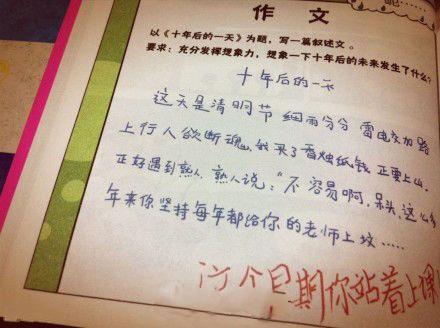 吧……
作 文
以《十年后的一天》为题，写一篇叙述文。
要求：充分发挥想象力，想象一下十年后的未来发生了什么？
十年后的一天
这天是清明节 细雨分分 雷电交加 路
上行人欲断魂，我买了香烛纸钱 正要上山，
正好遇到熟人，熟人说：“不容易啊，呆头，这么多
年来你坚持每年都给你的老师上坟……
这个日期你站着上课